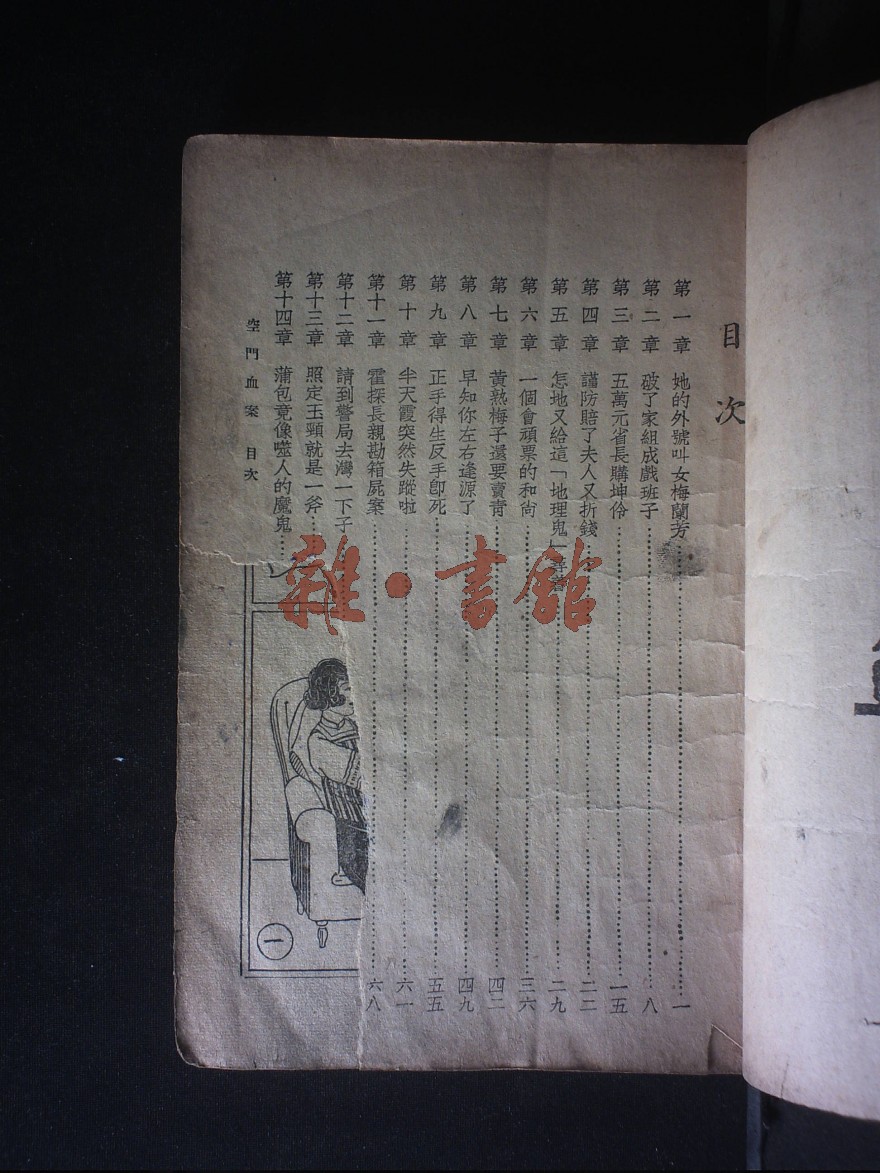 目次
第一章 她的外號叫女梅蘭芳 一
第二章 破了家組成戲班子 八
第三章 五萬元省長購坤伶 一五
第四章 謹防賠了夫人又折錢 二二
第五章 怎地又給這「地理鬼」 二九
第六章 一個會頑票的和尙 三六
第七章 黃熟梅子還要賣靑 四二
第八章 早知你左右逢源了 四九
第九章 正手得生反手卽死 五五
第十章 半天霞突然失蹤啦 六一
第十一章 霍探長親勘箱屍案 六八
第十二章 請到警局去灣一下子
第十三章 照定玉頸就是一斧
第十四章 蒲包竟像噬人的魔鬼
空門血案 目次
一
雜·書館